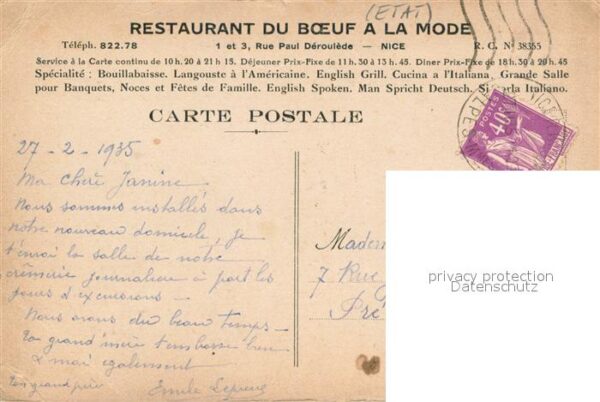 (ETAT)
RESTAURANT DU BŒUF A LA MODE
Téléph. 822.78 1 et 3, Rue Paul Déroulède — NICE R. C. Nº 38355
Service à la Carte continu de 10 h. 20 à 21 h 15. Déjeuner Prix-Fixe de 11 h. 30 à 13 h. 45. Diner Prix-Fixe de 18 h. 30 à 20 h. 45
Spécialité : Bouillabaisse. Langouste à l'Américaine. English Grill. Cucina a l'Italiana, Grande Salle
pour Banquets, Noces et Fêtes de Famille. English Spoken. Man Spricht Deutsch. Si Parla Italiano.
CARTE POSTALE
POSTES
40c
27-2-1935
Ma chère Janine
Nous sommes installés dans
notre nouveau domicile, je
t'envoi la salle de notre
journalière à part les
jours d'excursions —
Nous avons du beau temps —
Ta grand'mère t'embrasse bien
& moi également
Ton grand père Emile
Madem
7 Rue
Pré
privacy protection
Datenschutz